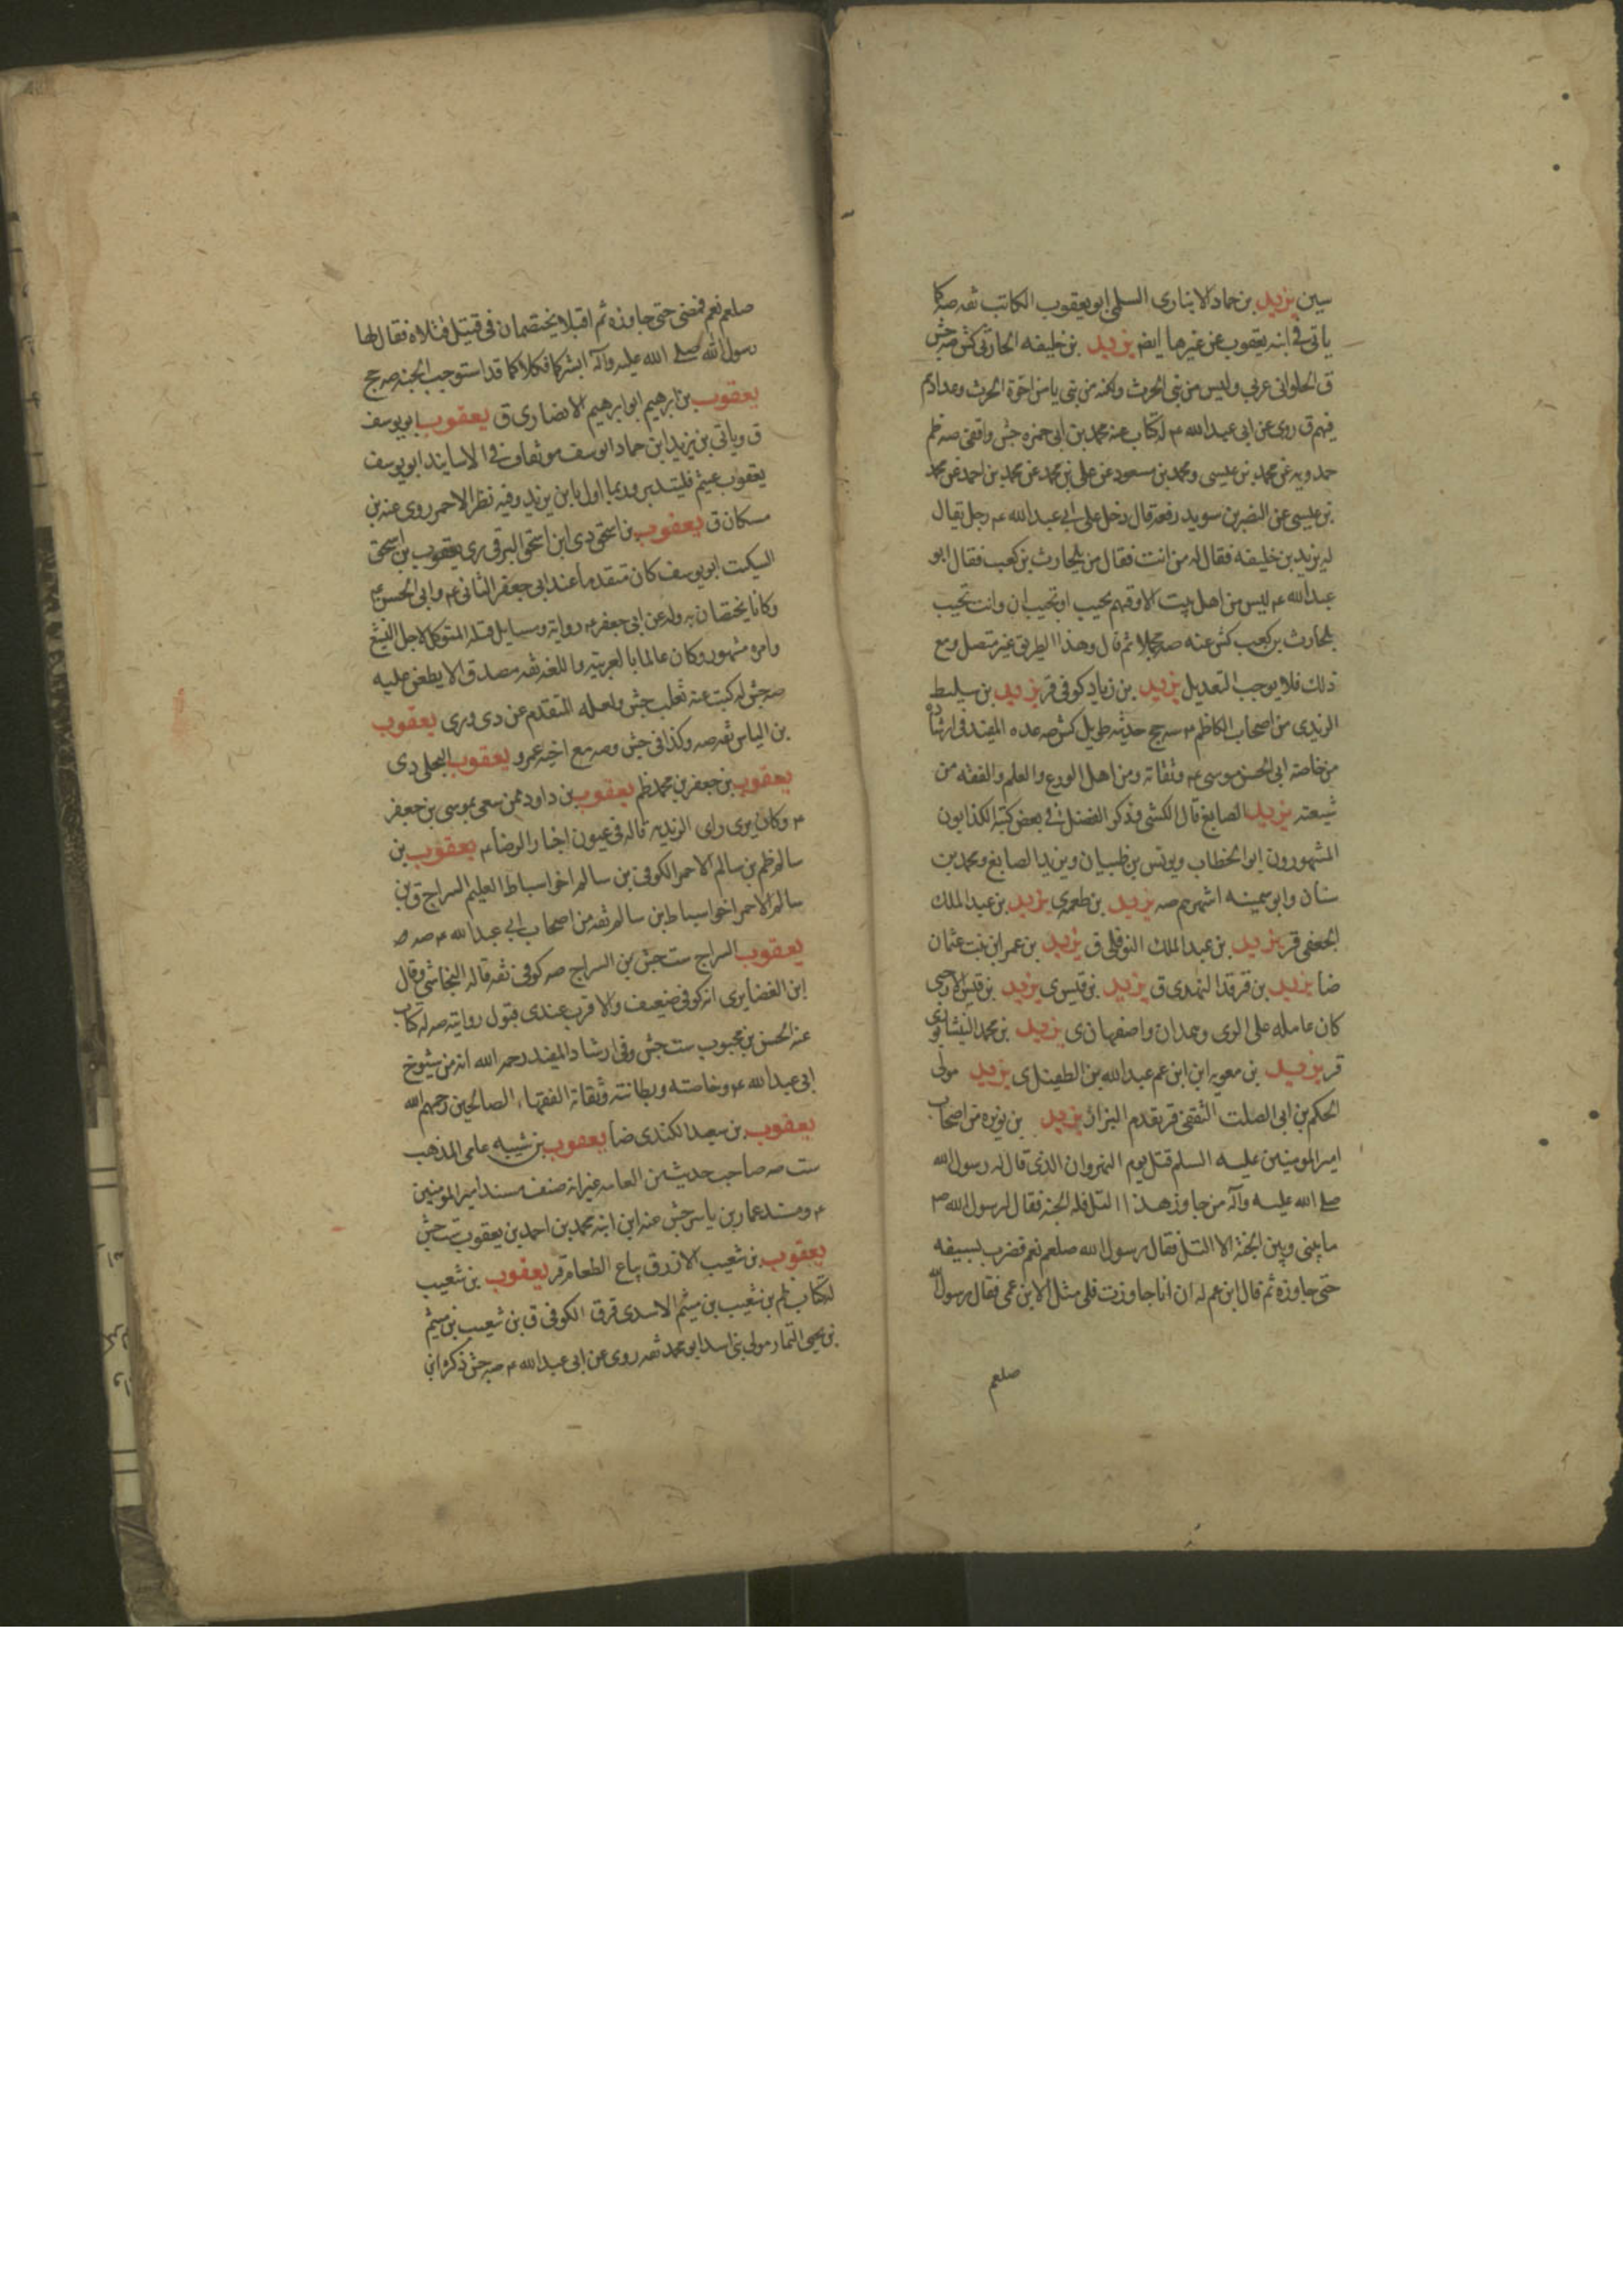 سين يزيد بن حماد الانبارى السلمى ابو يعقوب الكاتب ثقه صه كما
ياتى فى ابنه يعقوب عن غيرها ايضا يزيد بن خليفه الحارثى كش صه جش
ق الحلوانى عربى وليس من بنى الحرث ولكنه من بنى يا من اخوة الحرث وعدادهم
فيهم ق روى عن ابى عبد الله ع له كتاب عنه محمد بن ابى حمزه جش واقفى صه ظم
حمدويه عن محمد بن عيسى ومحمد بن مسعود عن على بن محمد عن محمد بن احمد عن محمد
بن عيسى عن النضر بن سويد رفعه قال دخل على ابى عبد الله ع رجل يقال
له يزيد بن خليفه فقال له من انت فقال من بلحارث بن كعب فقال ابو
عبد الله ع ليس من اهل بيت الا وفيهم نجيب او نجيبان وانت نجيب
بلحارث بن كعب كش عنه صه مجملا ثم قال وهذا الطريق غير متصل ومع
ذلك فلا يوجب التعديل يزيد بن زياد كوفى قر يزيد بن سليط
الزيدى من اصحاب الكاظم ع صه ج حديثه طويل كش صه عده المفيد فى ارشاده
من خاصة ابى الحسن موسى ع وثقاته ومن اهل الورع والعلم والفقه من
شيعته يزيد الصايغ قال الكشى وذكر الفضل فى بعض كتبه الكذابون
المشهورون ابو الخطاب ويونس بن ظبيان ويزيد الصايغ ومحمد بن
سنان وابو سمينه اشهرهم صه يزيد بن طعمه ى يزيد بن عبد الملك
الجعفى قر يزيد بن عبد الملك النوفلى ق يزيد بن عمر ابن بنت عثمان
ضا يزيد بن فرقد النهدى ق يزيد بن قيس ى يزيد بن قيس الارحبى
كان عامله على الرى وهمدان واصفهان ى يزيد بن محمد النيشابورى
قر يزيد بن معويه ابن ابن عم عبد الله بن الطفيل ى يزيد مولى
الحكم بن ابى الصلت الثقفى قر يقدم البزاز يزيد بن نويره من اصحاب
امير المومنين عليه السلم قتل يوم النهروان الذى قال له رسول الله
صلى الله عليه وآله من جاوز هذا التل فله الجنه فقال لرسول الله ص
ما بينى وبين الجنة الا التل فقال رسول الله صلعم نعم فضرب بسيفه
حتى جاوزه ثم قال ابن عم له ان انا جاوزت فلى مثل الابن عمى فقال رسول الله
صلعم
صلعم نعم فمضى حتى جاوزه ثم اقبلا يختصمان فى قتيل قتلاه فقال لهما
رسول الله صلى الله عليه وآله ابشرا فكلاكما قد استوجب الجنه صه ج
يعقوب بن ابرهيم ابو ابرهيم الانصارى ق يعقوب ابو يوسف
ق وياتى بن يزيد ابن حماد ابو يوسف فى الاسانيد ابو يوسف
يعقوب بن عيثم فليتدبر وربما اول بابن يزيد وفيه نظر الاحمر روى عنه بن
مسكان ق يعقوب بن اسحق دى ابن اسحق البرقى رى يعقوب بن اسحق
السكيت ابو يوسف كان متقدما عند ابى جعفر الثانى ع وابى الحسن ع
وكانا يختصانه وله عن ابى جعفر ع رواية ومسايل قتله المتوكل لاجل التشيع
وامره مشهور وكان عالما بالعربيه واللغه ثقه مصدق لا يطعن عليه
صه جش له كتب عنه ثعلب جش ولعله المتقدم عن دى ورى يعقوب
بن الياس ثقه صه وكذا فى جش وصه مع اخيه عمرو يعقوب البجلى دى
يعقوب بن جعفر بن محمد ظم يعقوب بن داود ممن سعى بموسى بن جعفر
ع وكان يرى راى الزيديه قاله فى عيون اخبار الرضا ع يعقوب بن
سالم ظم بن سالم الاحمر الكوفى بن سالم اخو اسباط العليم السراج ق بن
سالم الاحمر اخو اسباط بن سالم ثقه من اصحاب ابى عبد الله ع صه
يعقوب السراج ست جش بن السراج صه كوفى ثقه قاله النجاشى وقال
ابن الغضايرى انه كوفى ضعيف والاقرب عندى قبول روايته صه له كتاب
عنه الحسن بن محبوب ست جش وفى ارشاد المفيد رحمه الله انه من شيوخ
ابى عبد الله ع وخاصته وبطانته وثقاته الفقهاء الصالحين رحمهم الله
يعقوب بن سعيد الكندى ضا يعقوب بن شيبه عامى المذهب
ست صه صاحب حديث من العامه غير انه صنف مسند امير المومنين
ع ومسند عمار بن ياسر جش عنه ابن ابنه محمد بن احمد بن يعقوب ست جش
يعقوب بن شعيب الازرق بياع الطعام قر يعقوب بن شعيب
له كتاب ظم بن شعيب بن ميثم الاسدى قر ق الكوفى ق بن شعيب بن ميثم
بن يحيى التمار مولى بنى اسد ابو محمد ثقه روى عن ابى عبد الله ع صه جش ذكره ابن